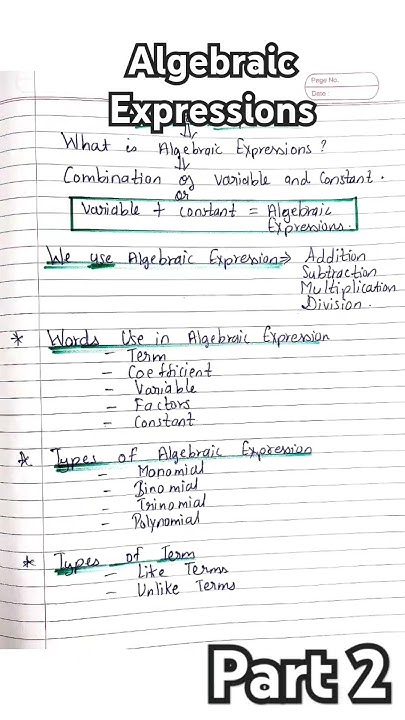 Algebraic
Expressions
Page No.
Date:
What is Algebraic Expressions?
Combination of variable and constant.
or
Variable + constant = Algebraic
Expressions.
We use Algebraic Expression⇒ Addition
Subtraction
Multiplication
Division.
* Words Use in Algebraic Expression
- Term
- Coefficient
- Variable
- Factors
- Constant
* Types of Algebraic Expression
- Monomial
- Binomial
- Trinomial
- Polynomial
* Types of Term
- Like Terms
- Unlike Terms
Part 2